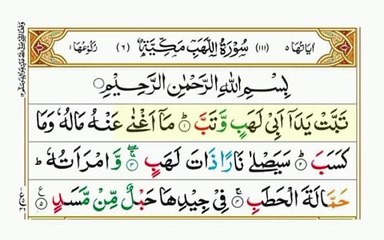 اٰیَاتُهَا ۵ (۱۱۱) سُوْرَةُ اللَّهَبِ مَكِّیَّةٌ (۶) رُكُوْعُهَا ۱
بِسْمِ اللّٰهِ الرَّحْمٰنِ الرَّحِیْمِ
تَبَّتْ یَدَاۤ اَبِیْ لَهَبٍ وَّتَبَّ ۱ مَاۤ اَغْنٰى عَنْهُ مَالُهٗ وَمَا
كَسَبَ ۲ سَیَصْلٰى نَارًا ذَاتَ لَهَبٍ ۳ وَّامْرَاَتُهٗ ط
حَمَّالَةَ الْحَطَبِ ۴ فِیْ جِیْدِهَا حَبْلٌ مِّنْ مَّسَدٍ ۵